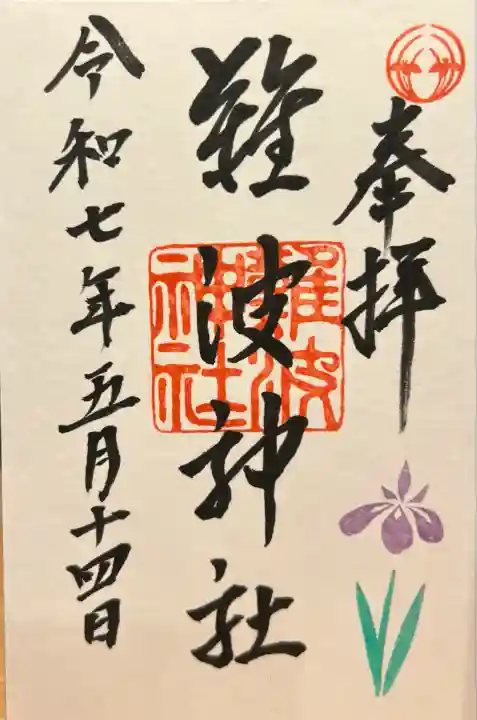 奉拝
難波神社
難波
神社
令和七年五月十四日